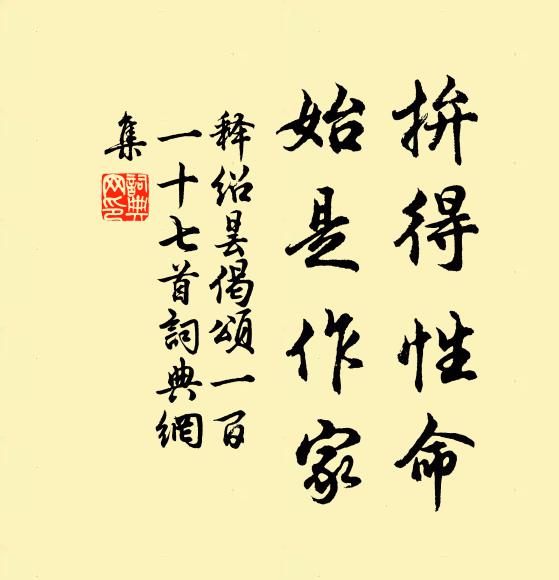 拚得性命
始是作家
释绍昙偈頌一百
一十七首詞典網
集
詞典
网印